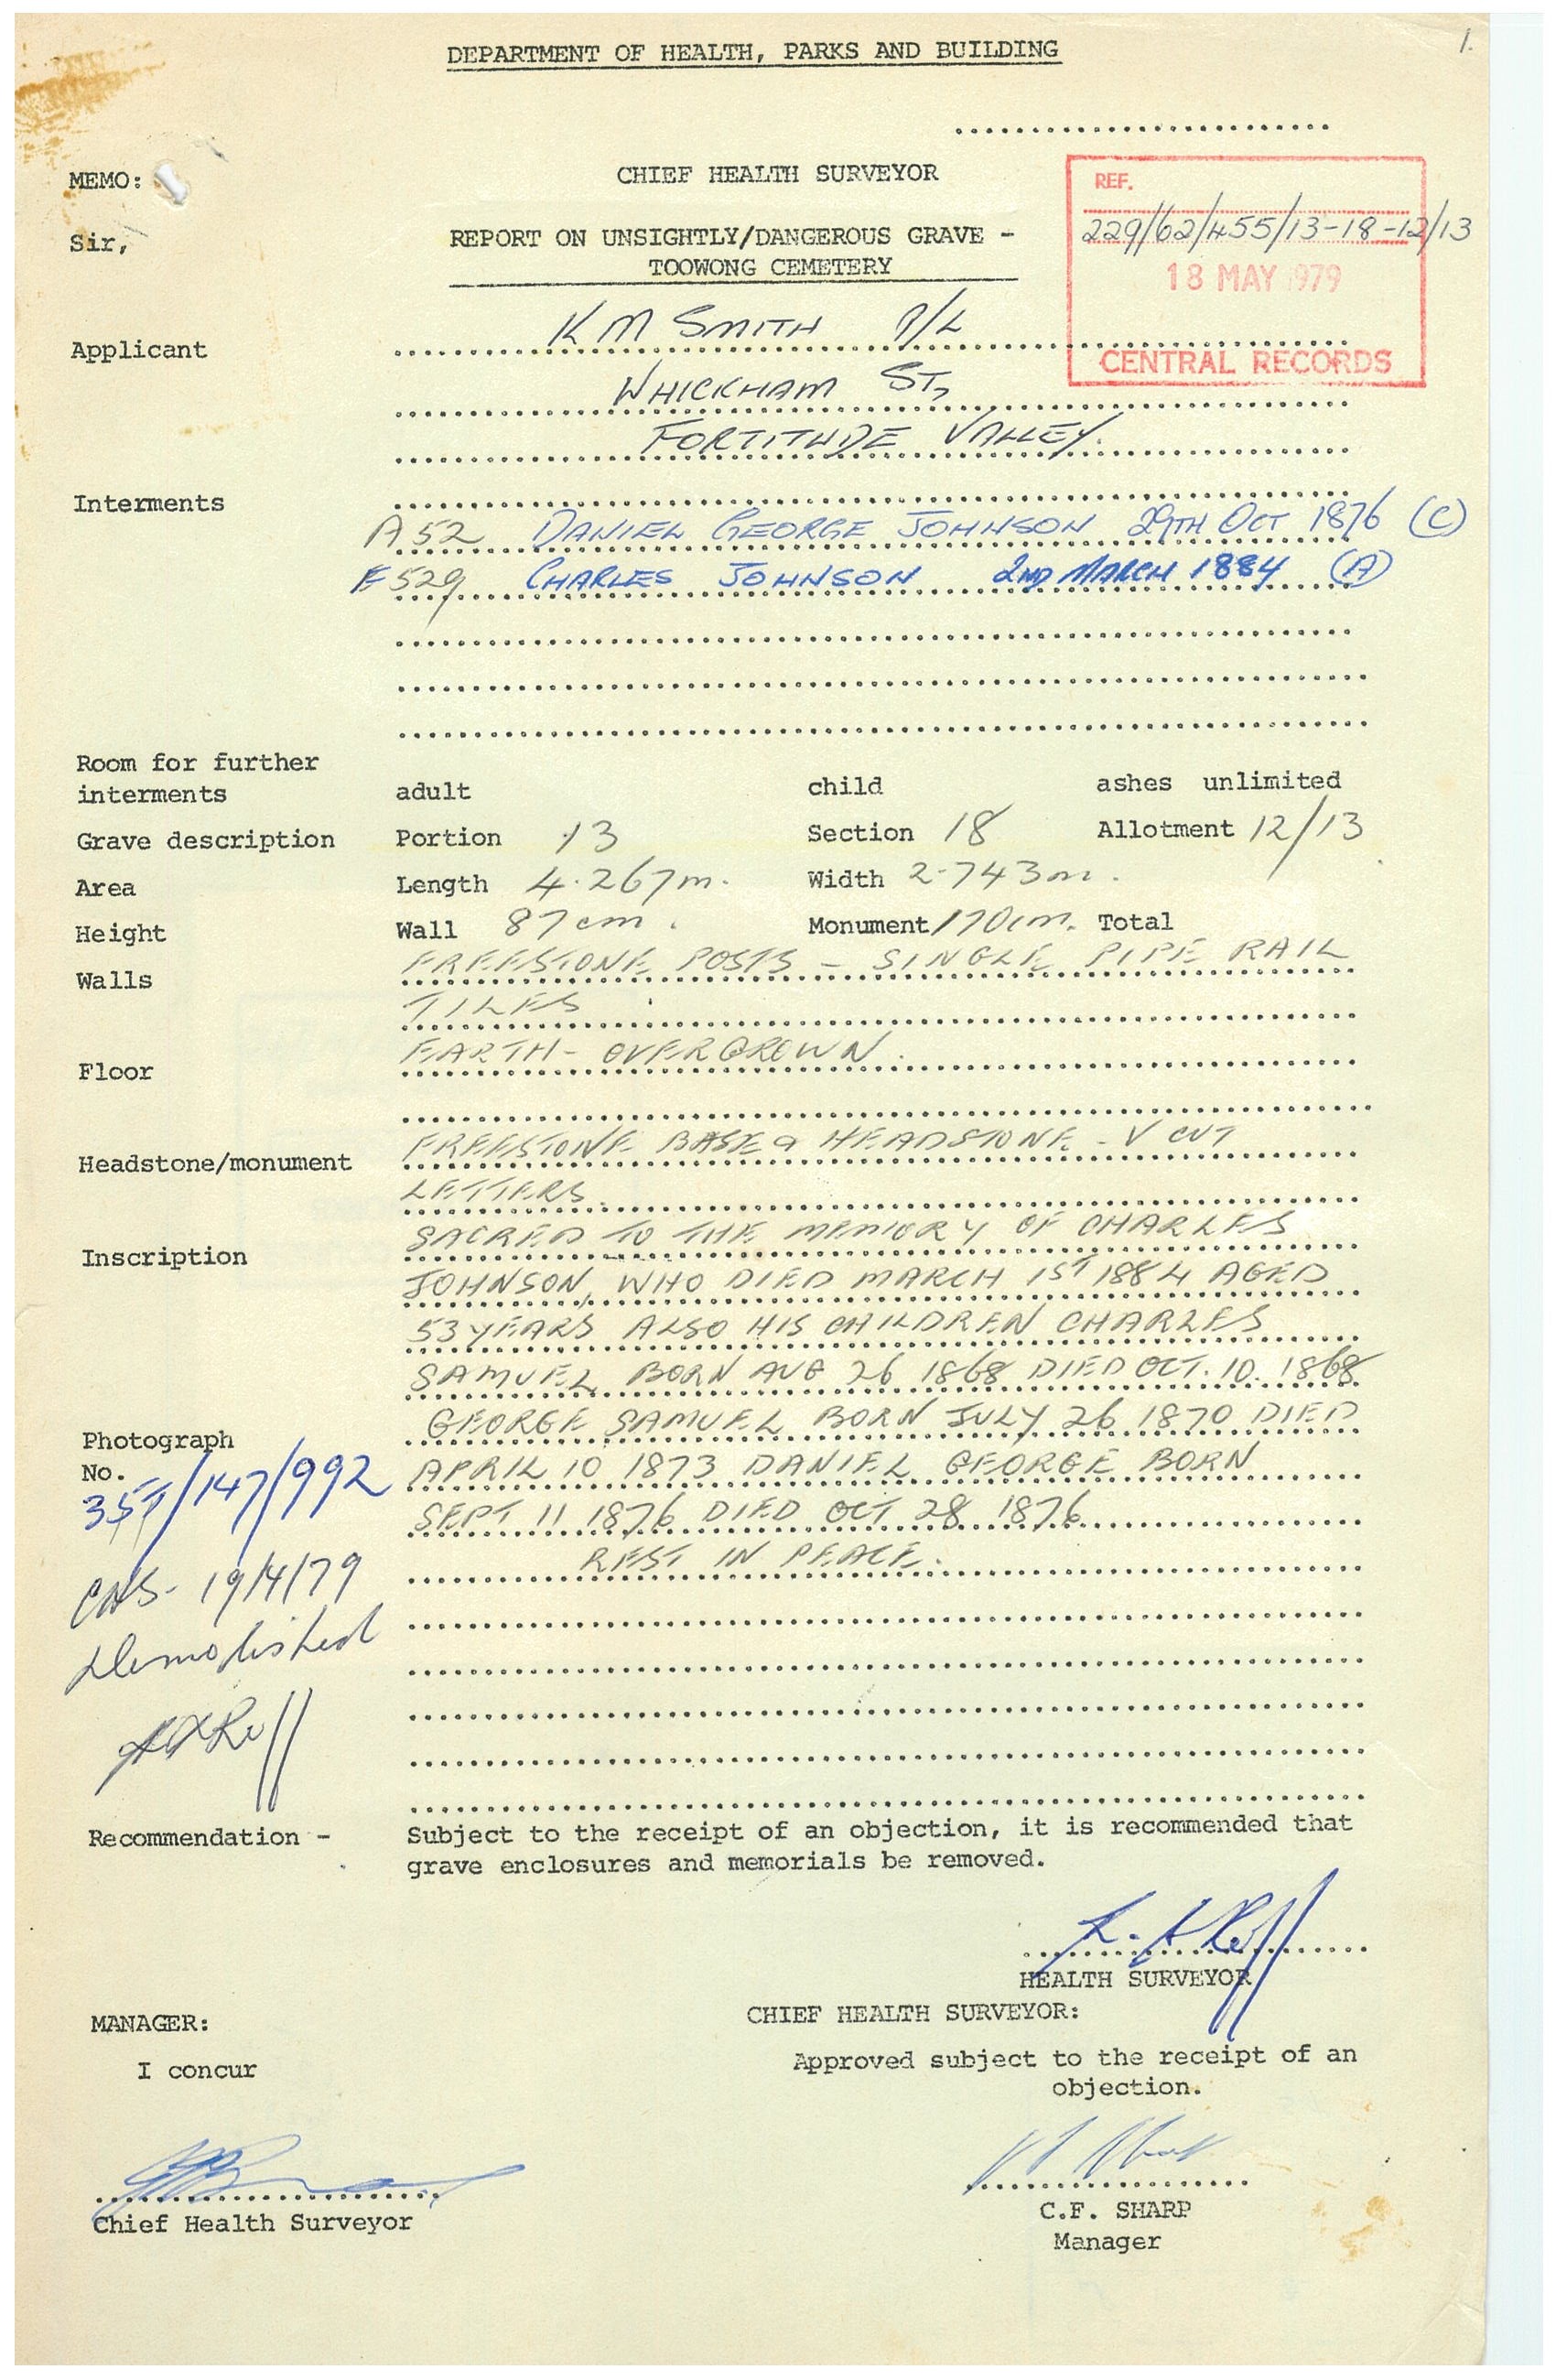 1.
DEPARTMENT OF HEALTH, PARKS AND BUILDING
MEMO:
CHIEF HEALTH SURVEYOR
REF.
229/62/455/13-18-12/13
18 MAY 1979
CENTRAL RECORDS
Sir,
REPORT ON UNSIGHTLY/DANGEROUS GRAVE -
TOOWONG CEMETERY
Applicant K M SMITH P/L
WHICKHAM ST,
FORTITUDE VALLEY.
Interments
A52 DANIEL GEORGE JOHNSON 29TH OCT 1876 (C)
E529 CHARLES JOHNSON 2ND MARCH 1884 (A)
Room for further
interments adult child ashes unlimited
Grave description Portion 13 Section 18 Allotment 12/13
Area Length 4.267m. Width 2.743m.
Height Wall 87cm. Monument 170cm. Total
Walls FREESTONE POSTS - SINGLE PIPE RAIL
TILES
Floor EARTH - OVERGROWN.
Headstone/monument FREESTONE BASE & HEADSTONE - V CUT
LETTERS.
Inscription SACRED TO THE MEMORY OF CHARLES
JOHNSON, WHO DIED MARCH 1ST 1884 AGED
53 YEARS ALSO HIS CHILDREN CHARLES
SAMUEL BORN AUG 26 1868 DIED OCT. 10. 1868
GEORGE SAMUEL BORN JULY 26 1870 DIED
Photograph
No. APRIL 10 1873 DANIEL GEORGE BORN
/147/992
SEPT 11 1876 DIED OCT 28 1876
REST IN PEACE.
19/4/79
Demolished
Recommendation - Subject to the receipt of an objection, it is recommended that
grave enclosures and memorials be removed.
HEALTH SURVEYOR
MANAGER:
CHIEF HEALTH SURVEYOR:
I concur
Approved subject to the receipt of an
objection.
Chief Health Surveyor
C.F. SHARP
Manager